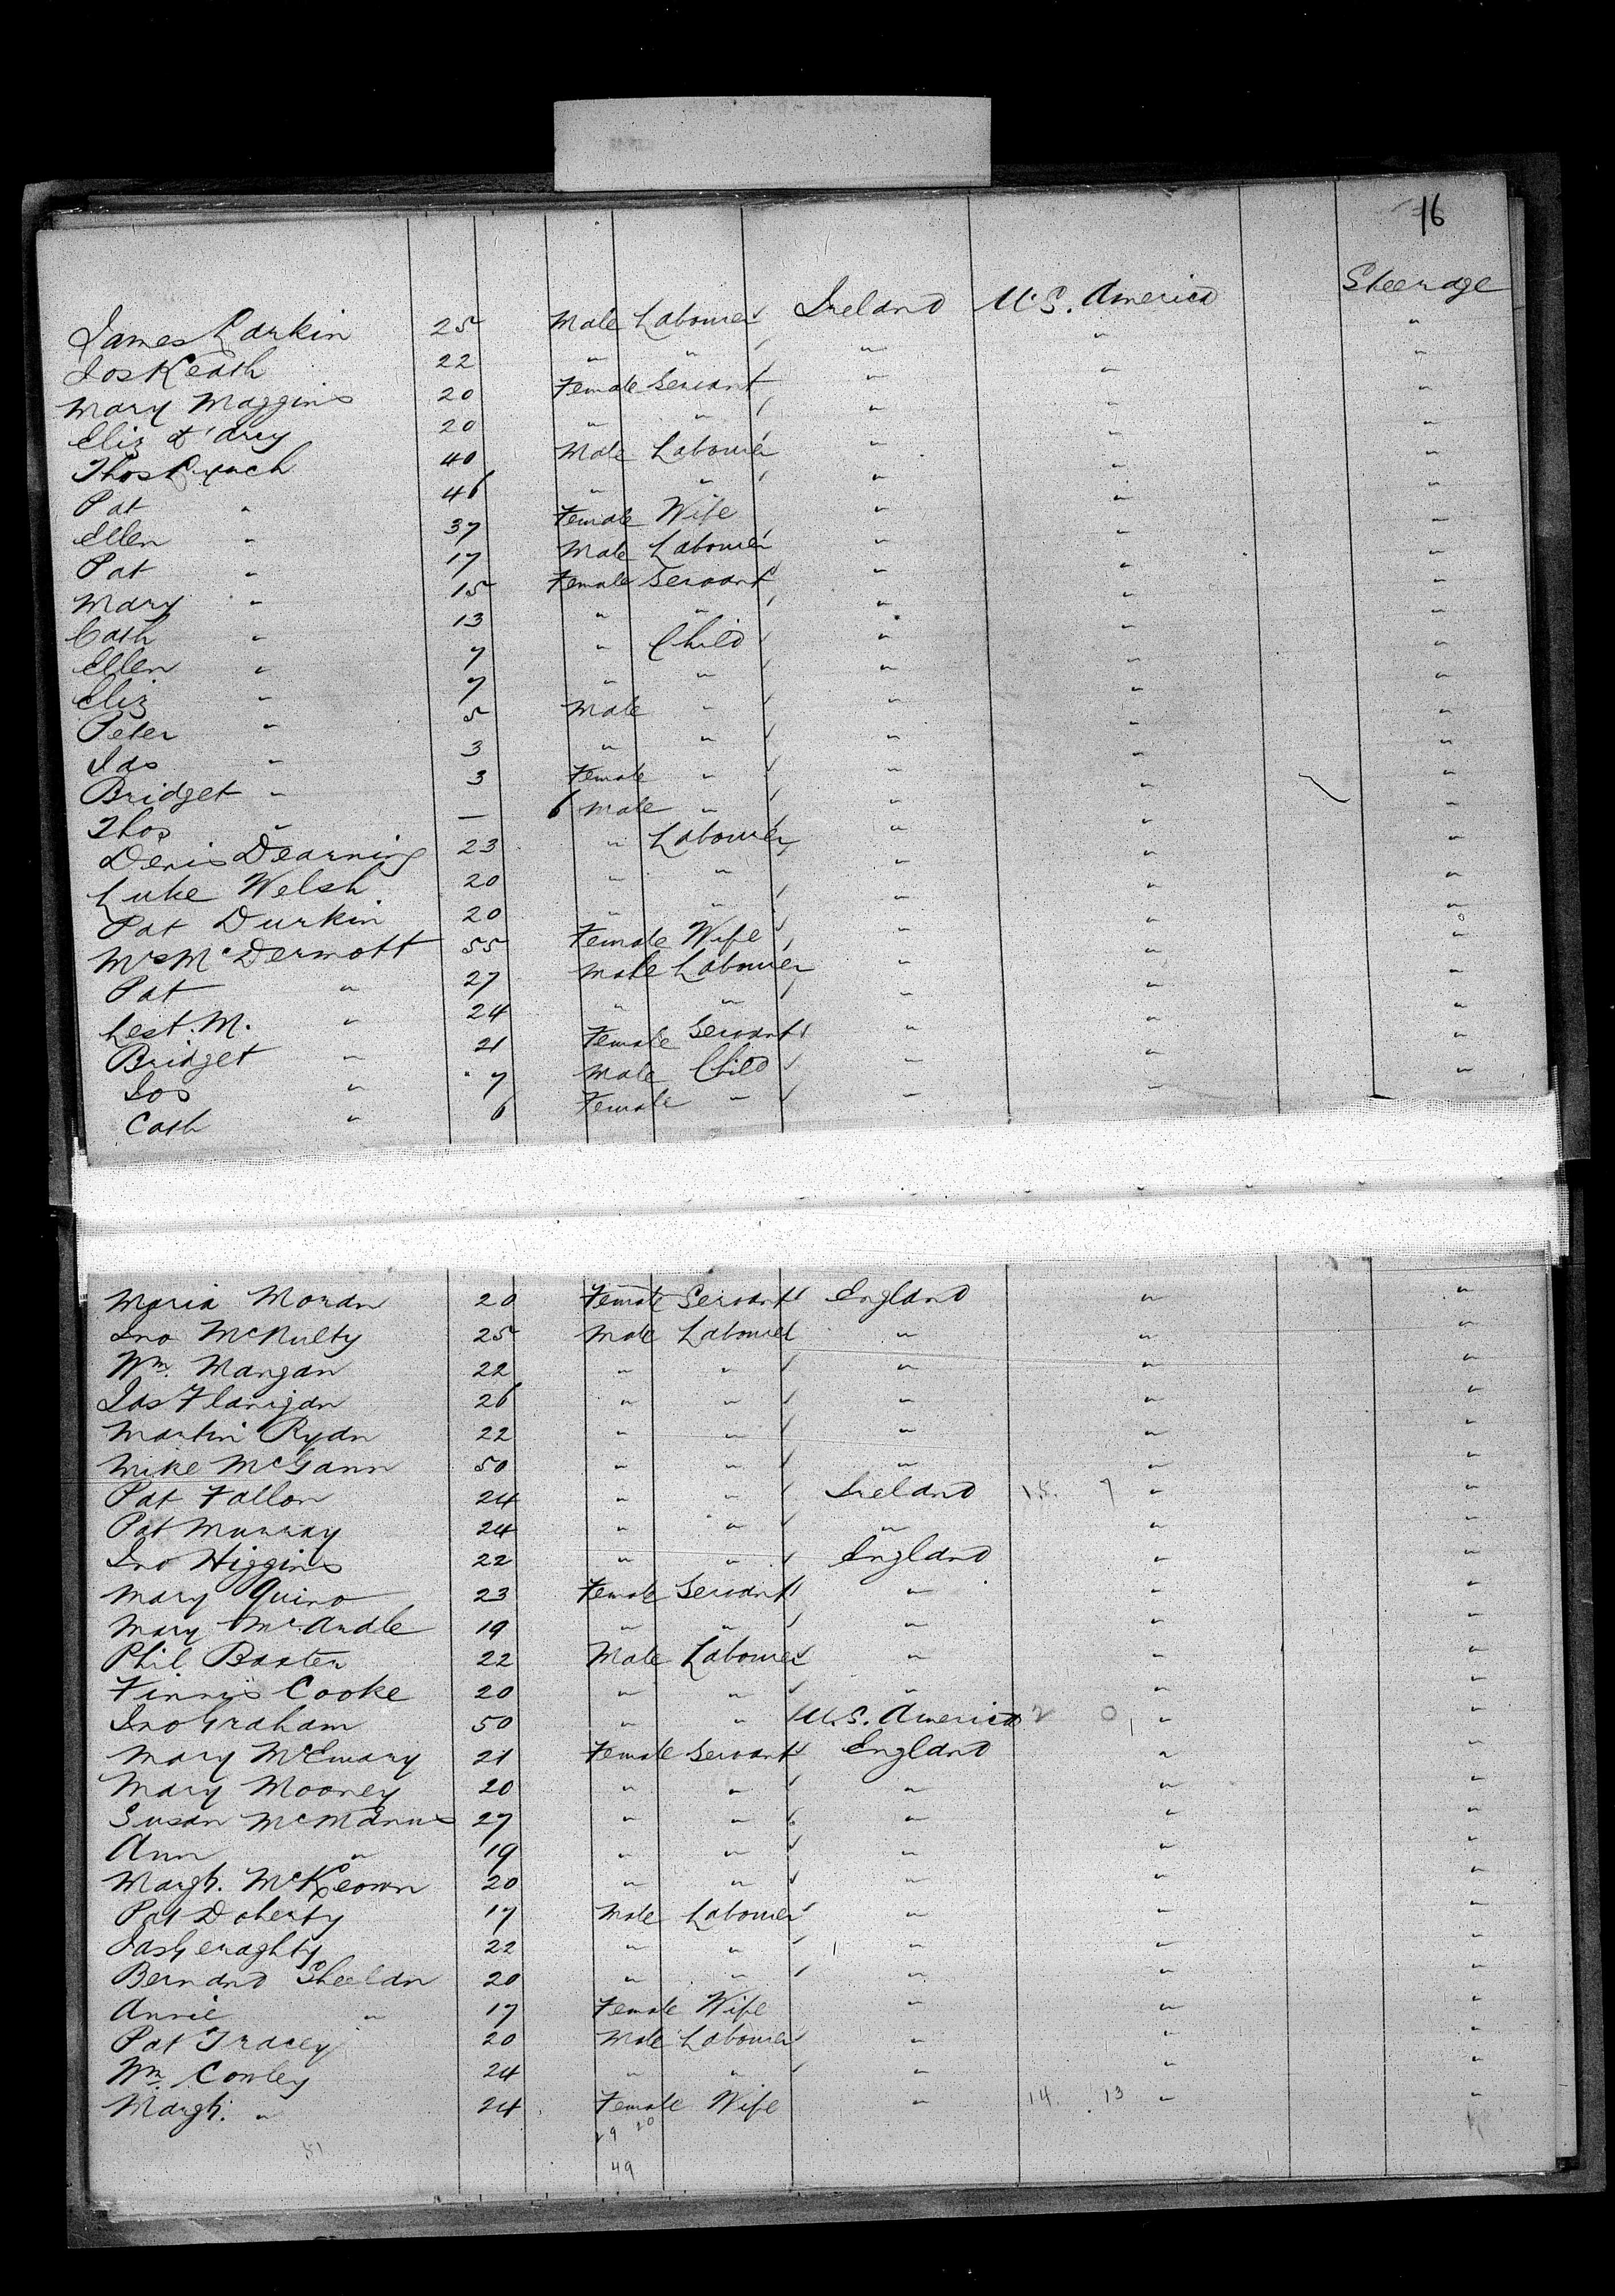 16
James Larkin 25 Male Labourer Ireland U.S. America Steerage
Jos Keath 22 " " " " "
Mary Maggins 20 Female Servant " " "
Eliz D'arcy 20 " " " " "
Thos Lynch 40 Male Labourer " " "
Pat " 46 " " " " "
Ellen " 37 Female Wife " " "
Pat " 17 Male Labourer " " "
Mary " 15 Female Servant " " "
Cath " 13 " " " " "
Ellen " 7 " Child " " "
Eliz " 7 " " " " "
Peter " 5 Male " " " "
Jas " 3 " " " " "
Bridget " 3 Female " " " "
Thos " — 6 Male " " " "
Denis Dearning 23 " Labourer " " "
Luke Welsh 20 " " " " "
Pat Durkin 20 " " " " "
Mrs McDermott 55 Female Wife " " "
Pat " 27 Male Labourer " " "
M. " 24 " " " " "
Bridget " 21 Female Servant " " "
Jos " 7 Male Child " " "
Cath " 6 Female " " " "
Maria Moran 20 Female Servant England " "
Jno McNulty 25 Male Labourer " " "
Wm. Mangan 22 " " " " "
Jas Flanigan 26 " " " " "
Martin Ryan 22 " " " " "
Mike McGann 50 " " " " "
Pat Fallon 24 " " Ireland 15. 7 " "
Pat Murray 24 " " " " "
Jno Higgins 22 " " England " "
Mary Quinn 23 Female Servant " " "
Mary McArdle 19 " " " " "
Phil Baxter 22 Male Labourer " " "
Finnis Cooke 20 " " " " "
Jno Graham 50 " " U.S. America 2 0 " "
Mary 21 Female Servant England " "
Mary Mooney 20 " " " " "
Susan McManus 27 " " " " "
Ann " 19 " " " " "
Margt. McKeown 20 " " " " "
Pat Doherty 17 Male Labourer " " "
Jas Geraghty 22 " " " " "
Bernard Sheridan 20 " " " " "
Annie " 17 Female Wife " " "
Pat Tracey 20 Male Labourer " " "
Wm. Conley 24 " " " " "
Margt. " 24 Female Wife " 14. 13 " "
29 20
51
49